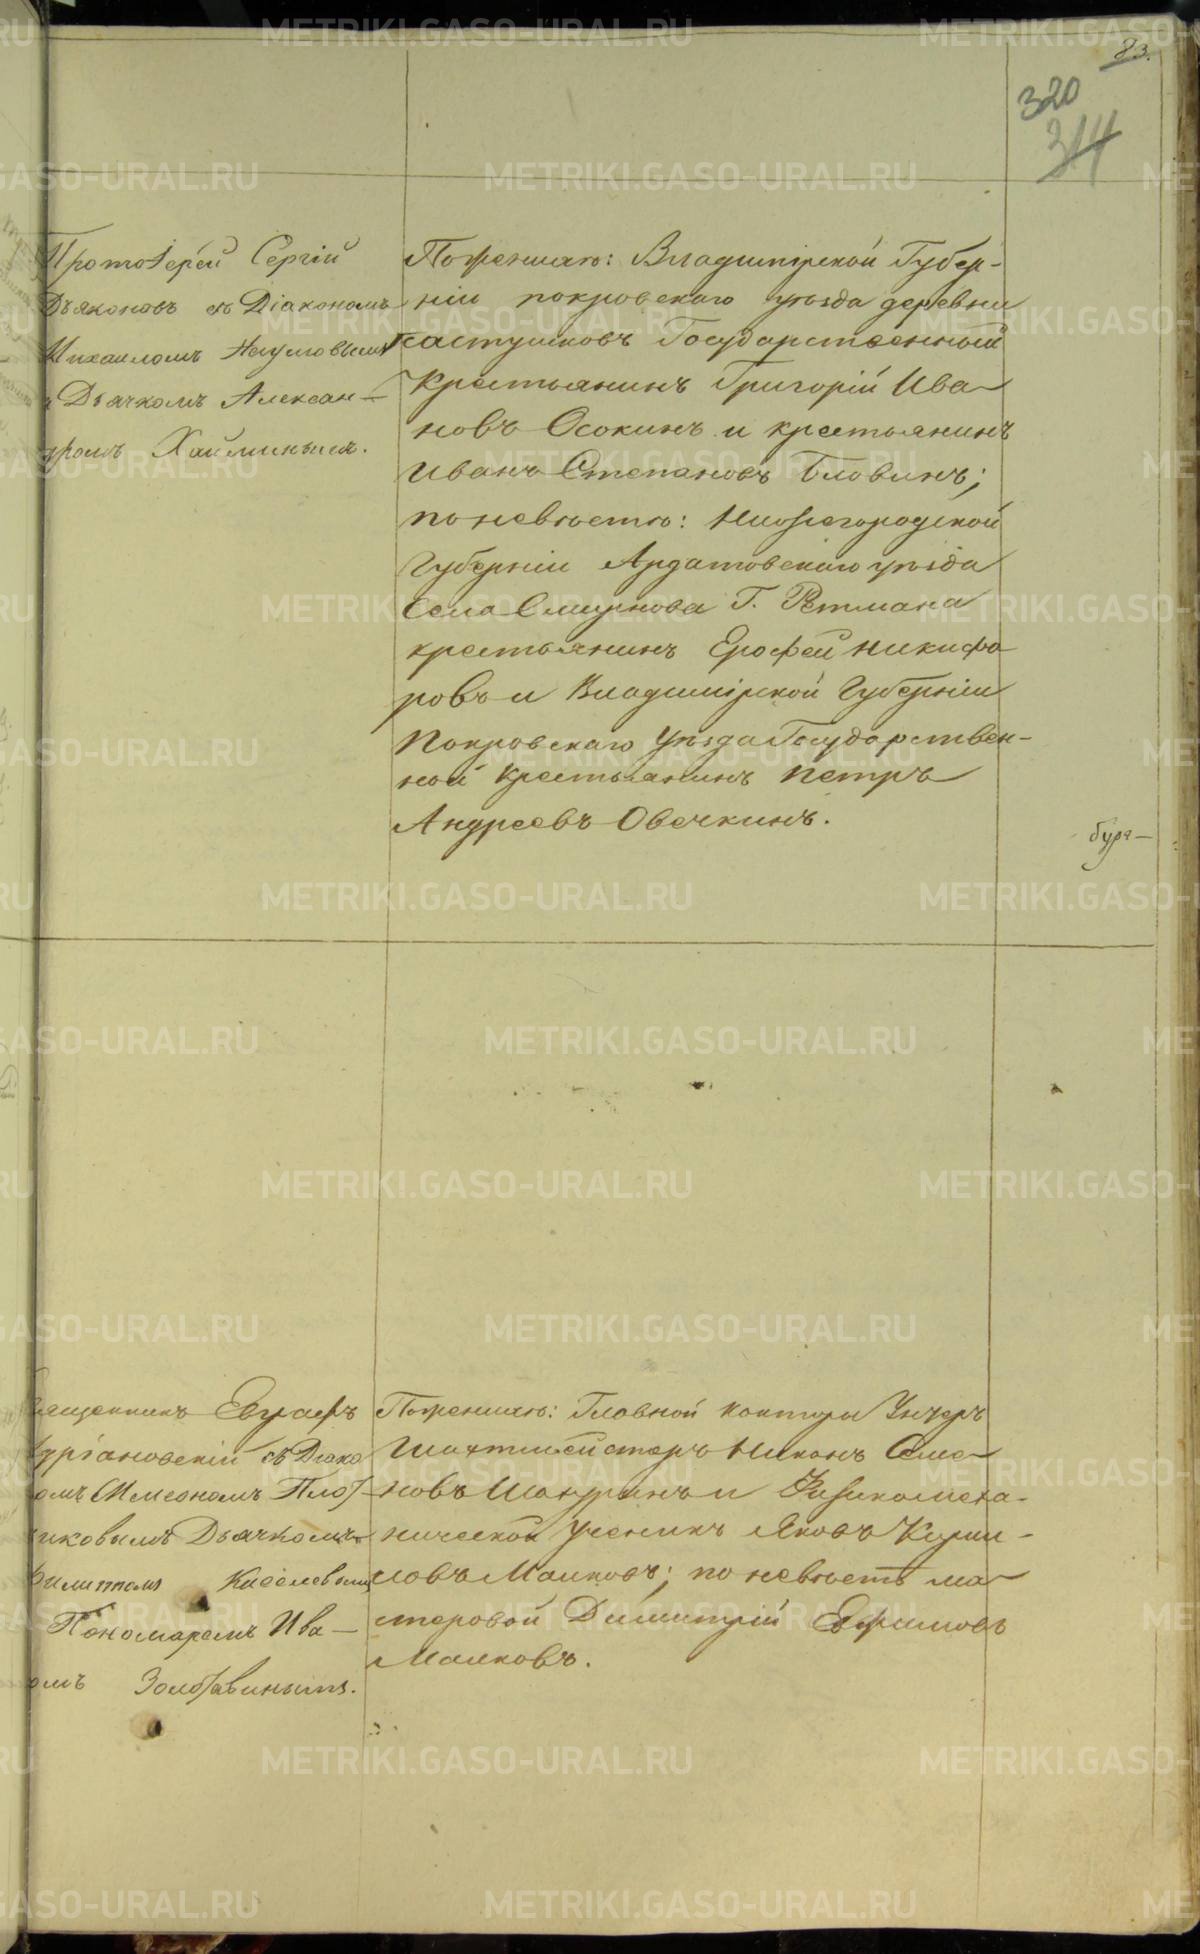 83.
320
314
Протоіерей Сергій
Дьяконовъ съ Діакономъ
Михаиломъ Наумовымъ
и Дьячкомъ Алексан-
дромъ
По женихѣ: Владимірской Губер-
ніи покровскаго уѣзда деревни
Государственный
Крестьянинъ Григорій Ива-
новъ Осокинъ и крестьянинъ
Иванъ Степановъ Бловинъ;
по невѣстѣ: Нижегородской
Губерніи Ардатовскаго уѣзда
Села Смирнова Г. Ретмана
крестьянинъ Ерофей Никифо
ровъ и Владимірской Губерніи
Покровскаго Уѣзда Государствен-
ной крестьянинъ Петръ
Андреевъ Овечкинъ.
Священникъ Евграфъ
съ Діако
омъ Симеономъ Плот-
никовымъ Дьячкомъ
Филиппомъ Киселевымъ
Пономаремъ Ива-
омъ Золотавинымъ.
По женихѣ: Главной конторы Унтеръ
Шахтмейстеръ Никонъ Семе-
новъ и
нической Ученикъ Яковъ Кирил-
ловъ Малковъ; по невѣстѣ ма-
стеровой Димитрій Ефимовъ
Малковъ.
METRIKI.GASO-URAL.RU